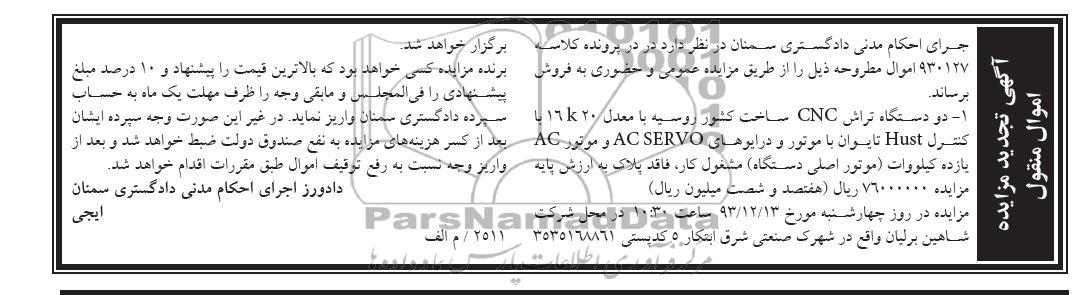 آگهی تجدید مزایده
اموال منقول
جـرای احکام مدنی دادگسـتری سـمنان در نظر دارد در در پرونده کلاسـه
۹۳۰۱۲۷ اموال مطروحه ذیل را از طریق مزایده عمومی و حضوری به فروش
برساند.
۱- دو دسـتگاه تراش CNC ساخت کشور روسـیه با معدل ۲۰ ۱۶k با
کنتـرل Hust تایـوان با موتور و درایوهـای AC SERVO و موتور AC
یازده کیلووات (موتور اصلی دستگاه) مشغول کار، فاقد پلاک به ارزش پایه
مزایده ۷۶۰۰۰۰۰۰۰ ریال (هفتصد و شصت میلیون ریال)
مزایده در روز چهارشـنبه مورخ ۹۳/۱۲/۱۳ ساعت ۱۰:۳۰ در محل شرکت
شـاهین برلیان واقع در شهرک صنعتی شرق ابتکار ۵ کدپستی ۳۵۳۵۱۶۸۸۶۱
برگزار خواهد شد.
برنده مزایده کسی خواهد بود که بالاترین قیمت را پیشنهاد و ۱۰ درصد مبلغ
پیشـنهادی را فی‌المجلـس و مابقی وجه را ظرف مهلت یک ماه به حساب
سـپرده دادگستری سمنان واریز نماید. در غیر این صورت وجه سپرده ایشان
بعد از کسر هزینه‌های مزایده به نفع صندوق دولت ضبط خواهد شد و بعد از
واریز وجه نسبت به رفع توقیف اموال طبق مقررات اقدام خواهد شد.
دادورز اجرای احکام مدنی دادگستری سمنان
ایجی
۲۵۱۱ / م الف
ParsNamadData
مرکز فرآوری اطلاعات پارس نماد داده‌ها